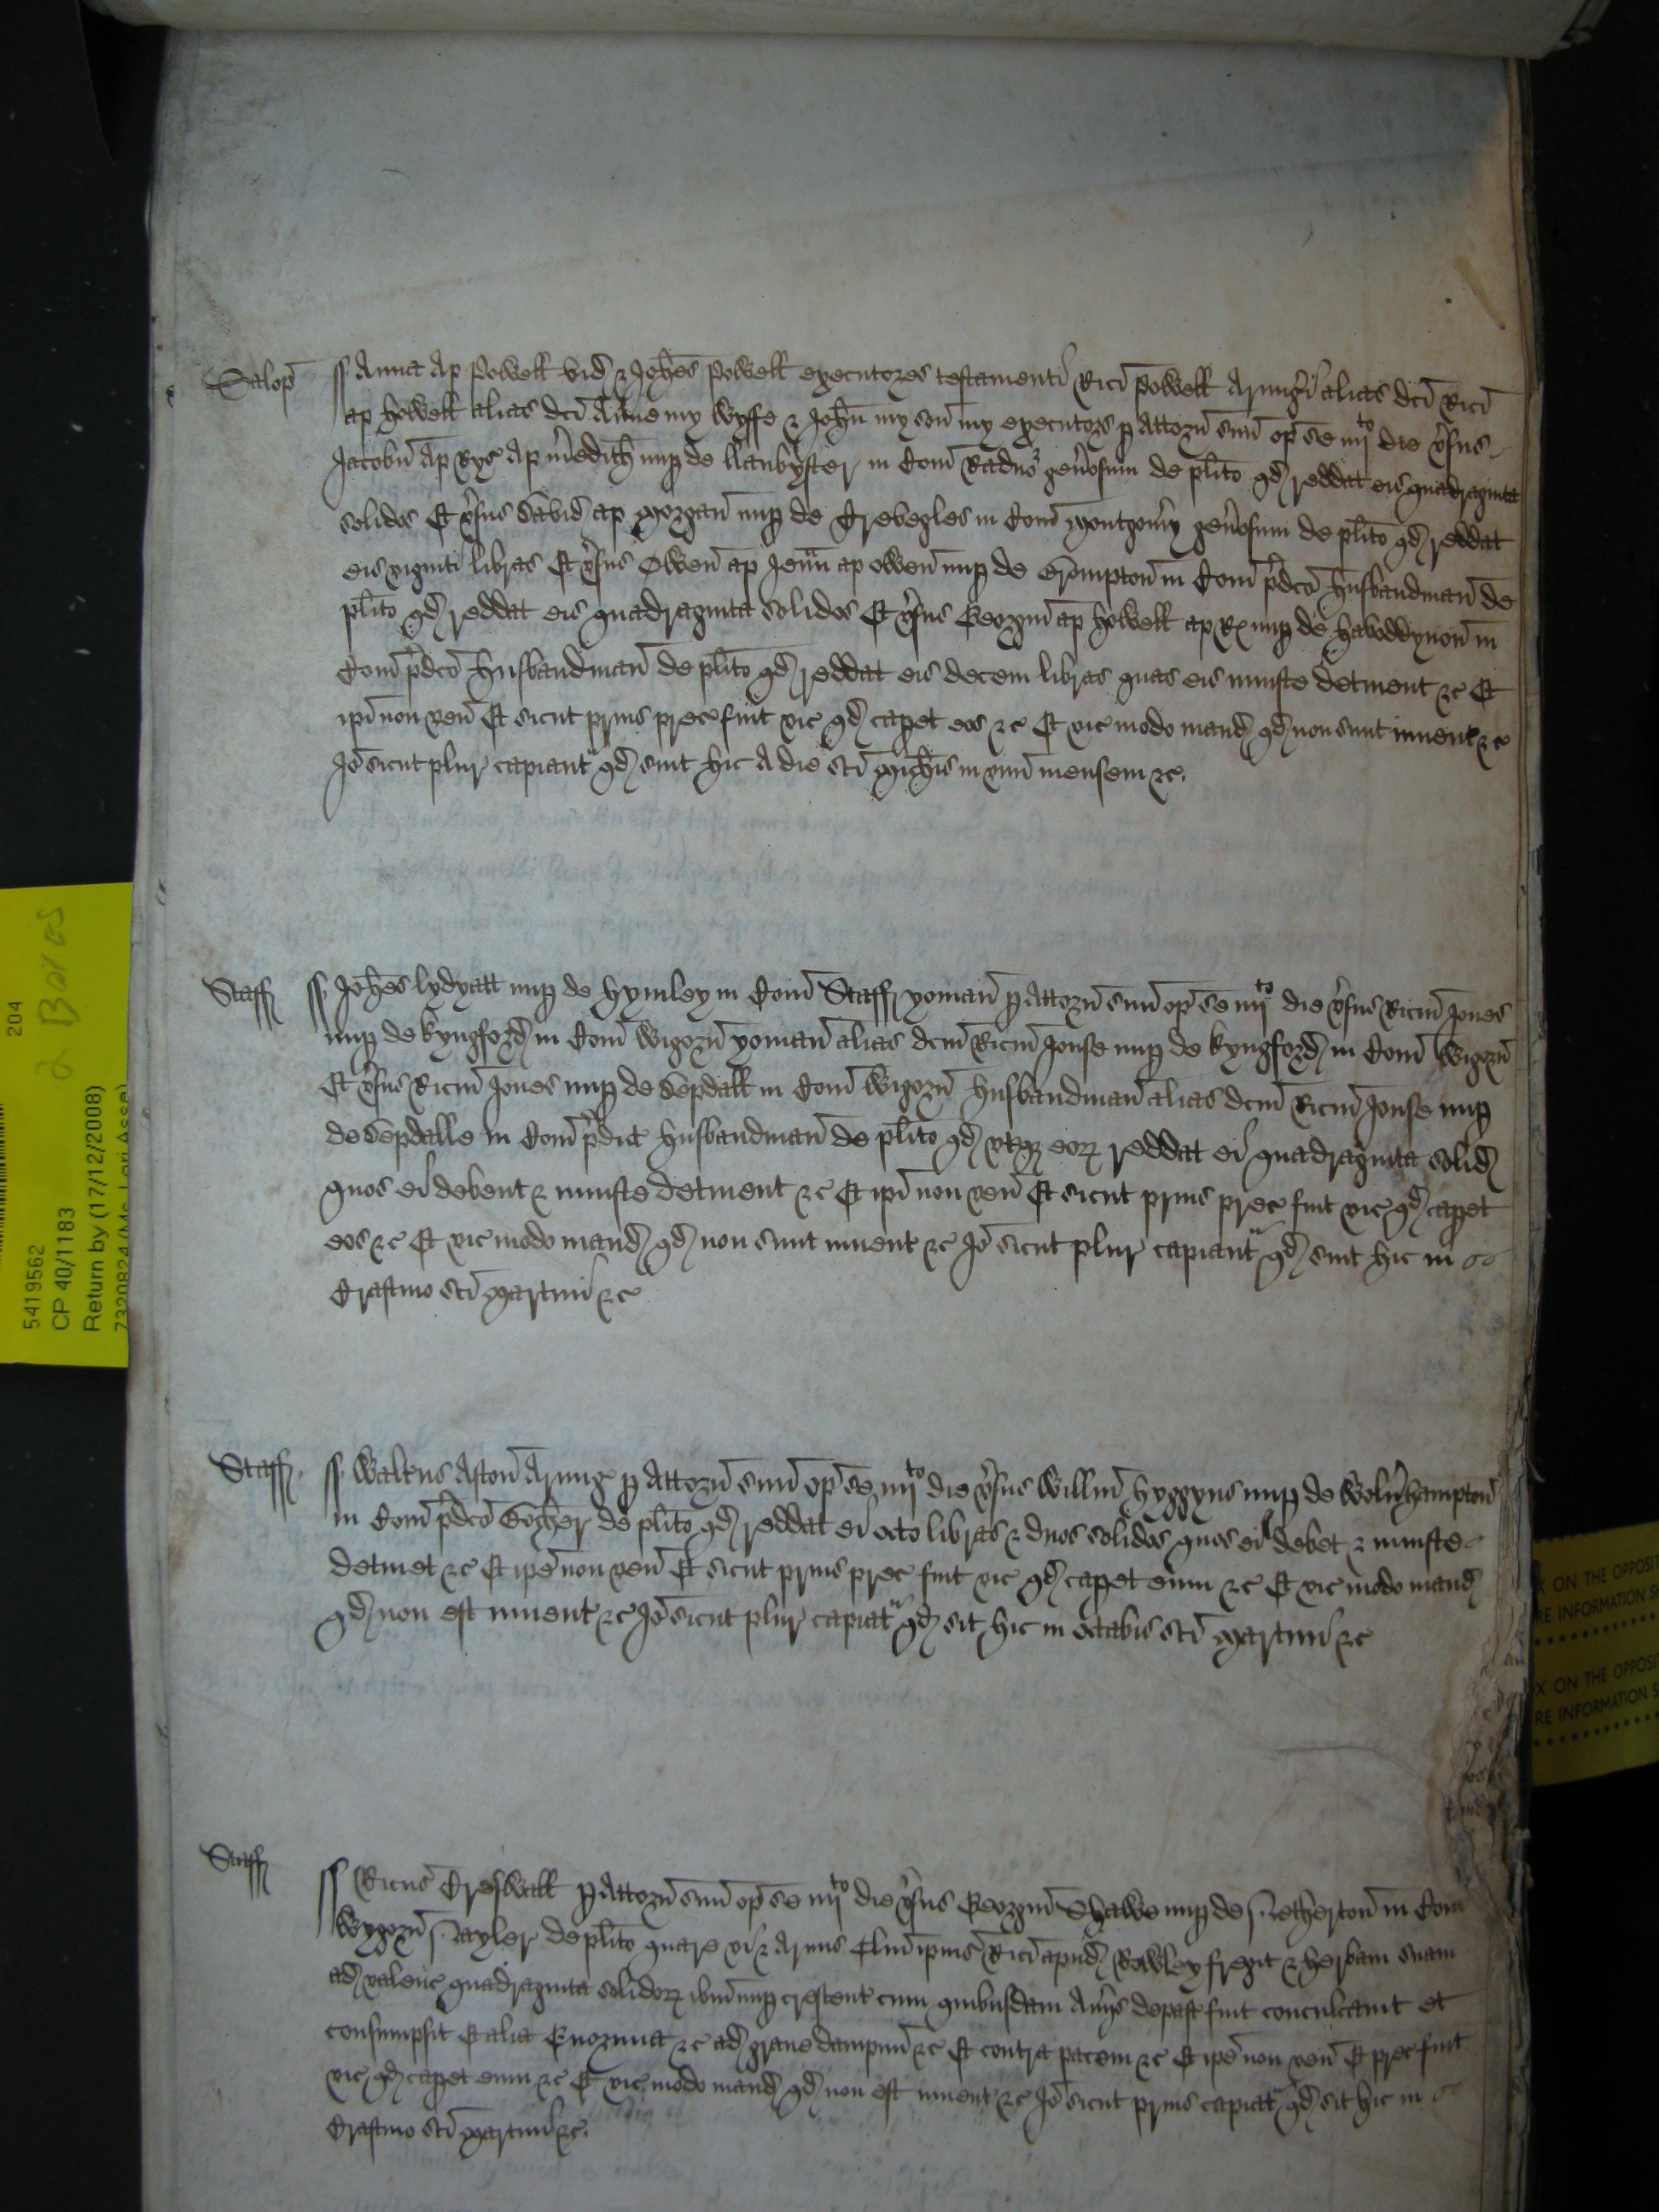 Salop̄ Anna Ap Powell vid̄ & Joh̄es Powell executores testamenti Rici Powell Armig̃i alias dc̄i Rici
ap howell alias dc̄i Anne my wyffe & Joh̄n my son my executors p Attorn̄ suū op̄ se iiijto die v̄sus
Jacobū Ap Ryс Ap m̄edith nup de llanbyster in Com̄ Radnor gen̄osum de pl̄ito qd reddat eis quadraginta
solidos Et v̄sus David ap Morgan nup de Trebegles in Com̄ Montgom̄y gen̄osum de pl̄ito qd reddat
eis viginti libras Et v̄sus Owen̄ ap Jeuⁿn ap owen̄ nup de Brompton̄ in Com̄ p̄dc̄o husbandman̄ de
pl̄ito qd reddat eis quadraginta solidos Et v̄sus Georgiū ap howell ap Rx nup de haboddynon in
Com̄ p̄dc̄o husbandman̄ de pl̄ito qd reddat eis decem libras quas eis iniuste detinent &c Et
ip̄i non ven̄ Et sicut prius prec̄ fuit vic̄ qd capet eos &c Et vic̄ modo mand̄ qd non sunt inuent̄ &c
Jō sicut plur̄ capiant̄ qd sint hic A die sc̄i Mich̄is in vnū mensem &c.
Staff Joh̄es lydyatt nup de hymley in Com̄ Staff yoman̄ p Attorn̄ suū op̄ se iiijto die v̄sus Ricm̄ Jones
nup de kyngford in Com̄ Wigorn̄ yoman̄ alias dcm̄ Ricm̄ Jonse nup de kyngford in Com̄ Wigorn̄
Et v̄sus Ricm̄ Jones nup de Sepdall in Com̄ Wigorn̄ husbandman̄ alias dcm̄ Ricm̄ Jonse nup
de Sepdalle in Com̄ p̄dict husbandman̄ de pl̄ito qd vtqz eorꝝ reddat ei quadraginta solid̄
quos ei debent & iniuste detinent &c Et ip̄i non ven̄ Et sicut prius prec̄ fuit vic̄ qd capet
eos &c Et vic̄ modo mand̄ qd non sunt inuent̄ &c Jō sicut plur̄ capiant̄ qd sint hic in
Crastino sc̄i Martini &c
Staff Walt̄us Aston̄ Armig̃ p Attorn̄ suū op̄ se iiijto die v̄sus Willm̄ hyggyns nup de Woluꝰhampton̄
in Com̄ p̄dc̄o Bocher de pl̄ito qd reddat ei octo libras & duos solidos quos ei debet & iniuste
detinet &c Et ip̄e non ven̄ Et sicut prius prec̄ fuit vic̄ qd capet eum &c Et vic̄ modo mand̄
qd non est inuent̄ &c Jō sicut plur̄ capiat̄ qd sit hic in octabis sc̄i Martini &c
Staff Ricus Creswall p Attorn̄ suū op̄ se iiijto die v̄sus Georgiū Shawe nup de Netherton̄ in Com̄
Wygorn̄ Nayler de pl̄ito quare vi & Armis Clm̄ ip̄ius Rici apud Rowley fregit & herbam suam
ad valenc̄ quadraginta solidorꝝ ib̄m nup crescent̄ cum quibusdam Au̇iis depast̄ fuit conculcauit et
consumpsit Et alia Enormia &c ad graue dampnū &c Et contra pacem &c Et ip̄e non ven̄ Et prec̄ fuit
vic̄ qd capet eum &c Et vic̄ modo mand̄ qd non est inuent̄ &c Jō sicut prius capiat̄ qd sit hic in
Crastino sc̄i Martini &c.
204
2 Boxes
5419562
CP 40/1183
Return by (17/12/2008)
X ON THE OPPOSIT
RE INFORMATION S
X ON THE OPPOSI
RE INFORMATION S